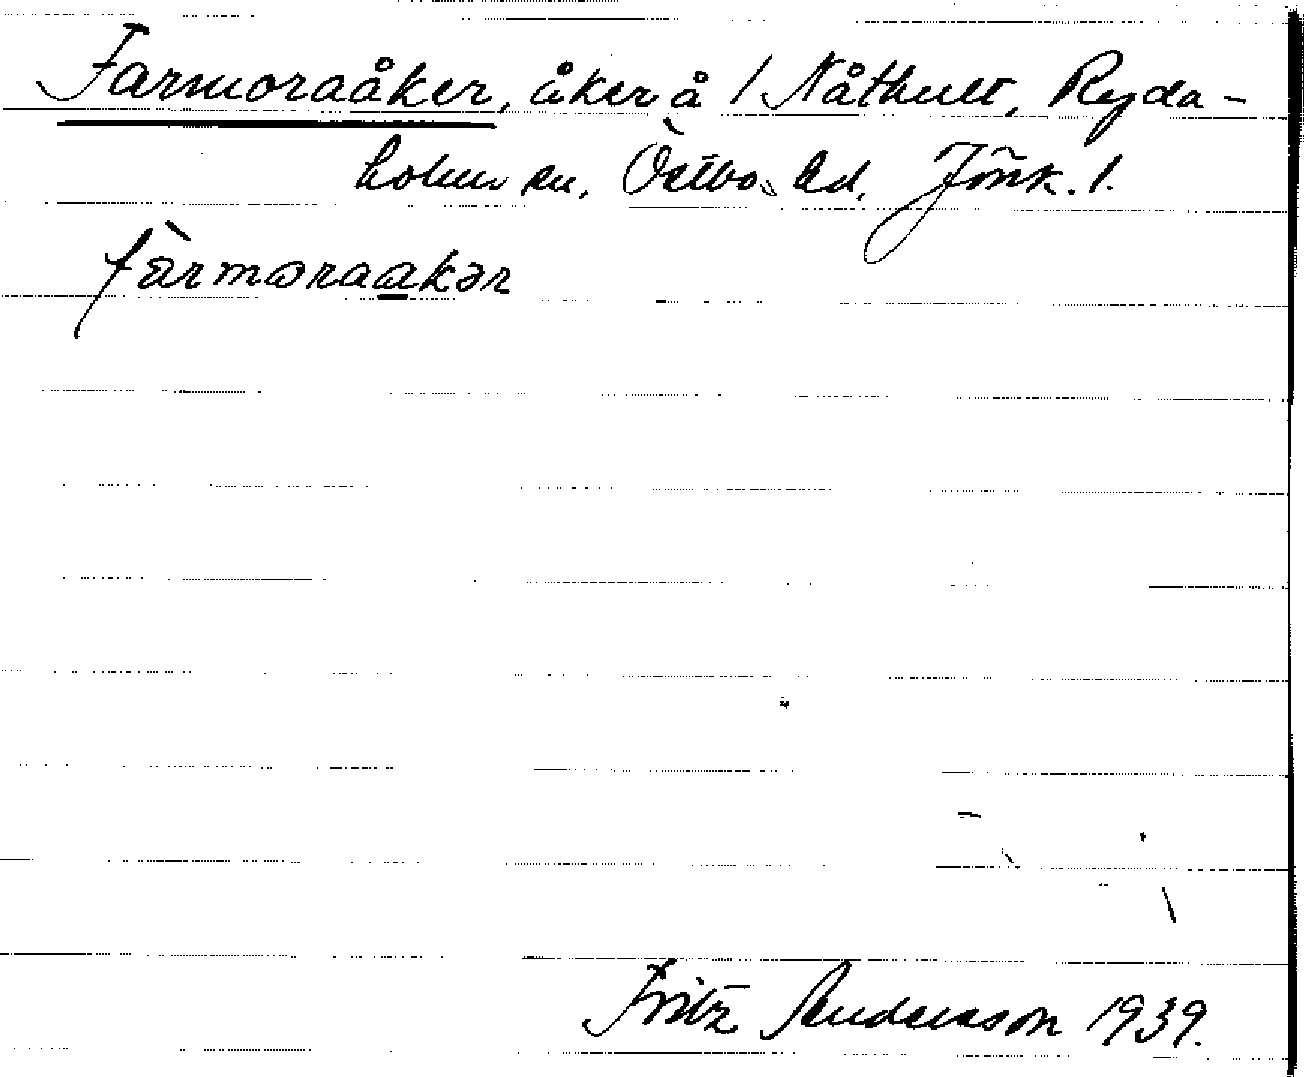 Farmoraåker, åker å 1 Nåthult, Ryda-
holm sn, Östbo hd, Jönk. l.
fàrmoraakər
Fritz Andersson 1939.